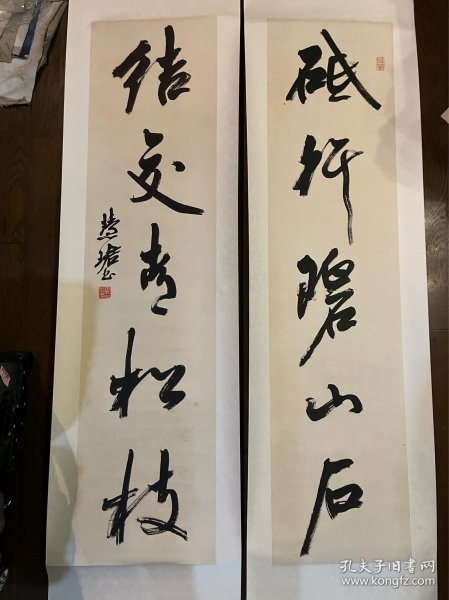 砥行碧山石
结交青松枝
慧珺书
孔夫子旧书网
www.kongfz.com